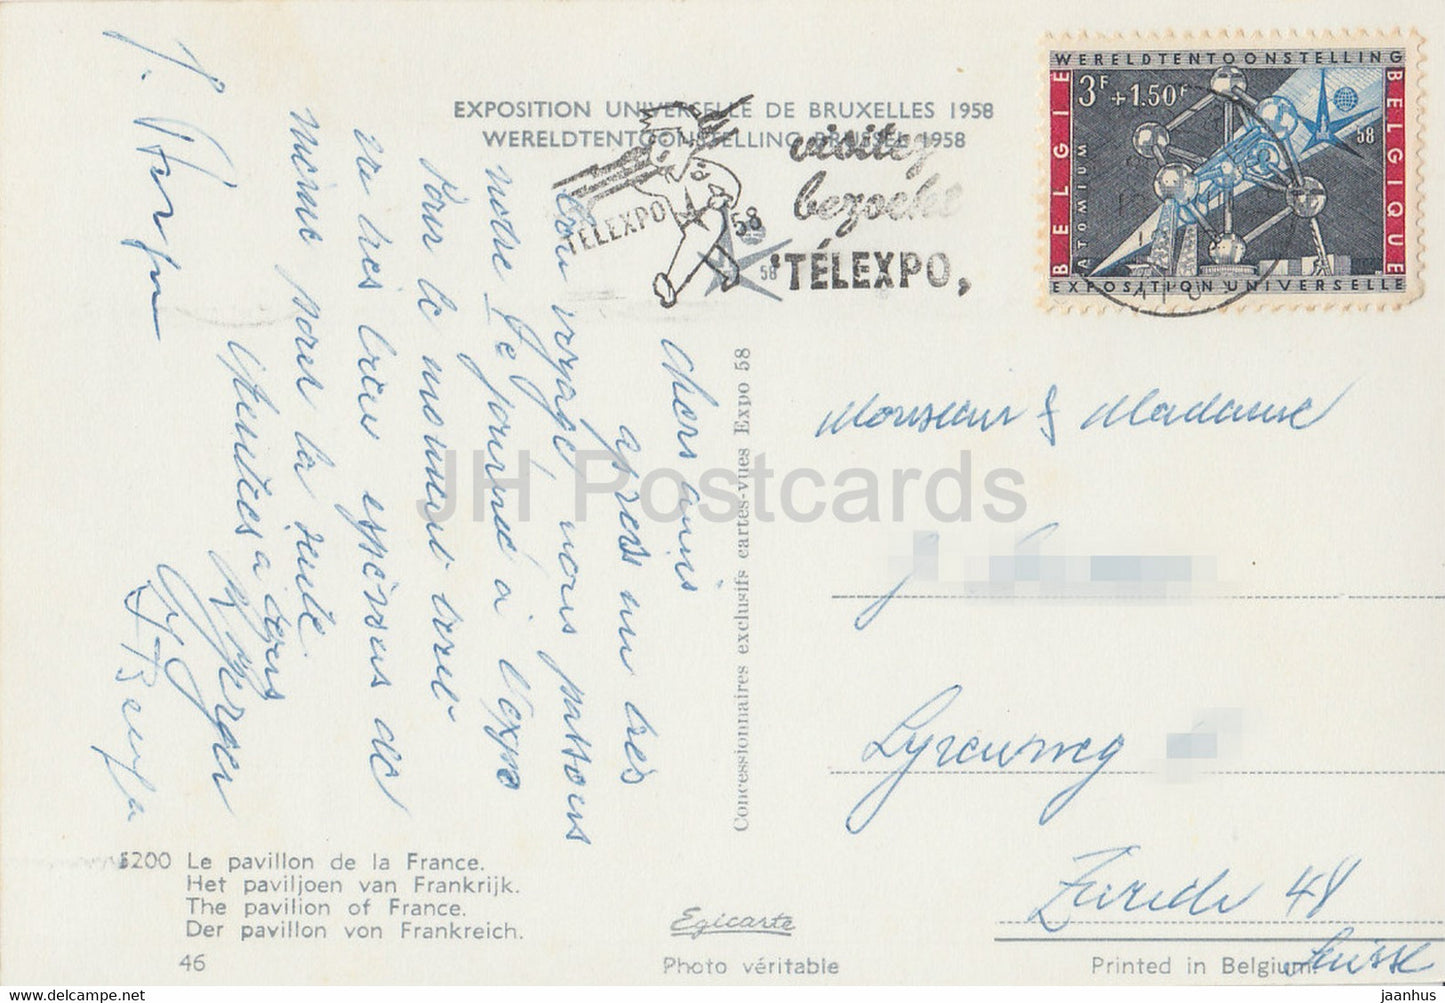 EXPOSITION UNIVERSELLE DE BRUXELLES 1958
WERELDTENTOONSTELLING BRUSSEL 1958
visitez
bezoekt
'TÉLEXPO,
TÉLEXPO 58
58
WERELDTENTOONSTELLING
3F +1.50F
BELGIE
ATOMIUM
BELGIQUE
58
EXPOSITION UNIVERSELLE
Chers amis
après un très
bon voyage nous passons
notre 1e journée à l'expo
Pour le moment tout
va très bien espérons de
même pour la suite
Amitiés à tous
Concessionnaires exclusifs cartes-vues Expo 58
Monsieur & Madame
J
Lyrenweg
Zurich 48
Suisse
5200 Le pavillon de la France.
Het paviljoen van Frankrijk.
The pavilion of France.
Der pavillon von Frankreich.
46
Egicarte
Photo véritable
Printed in Belgium.
JH Postcards
jaanhus.com